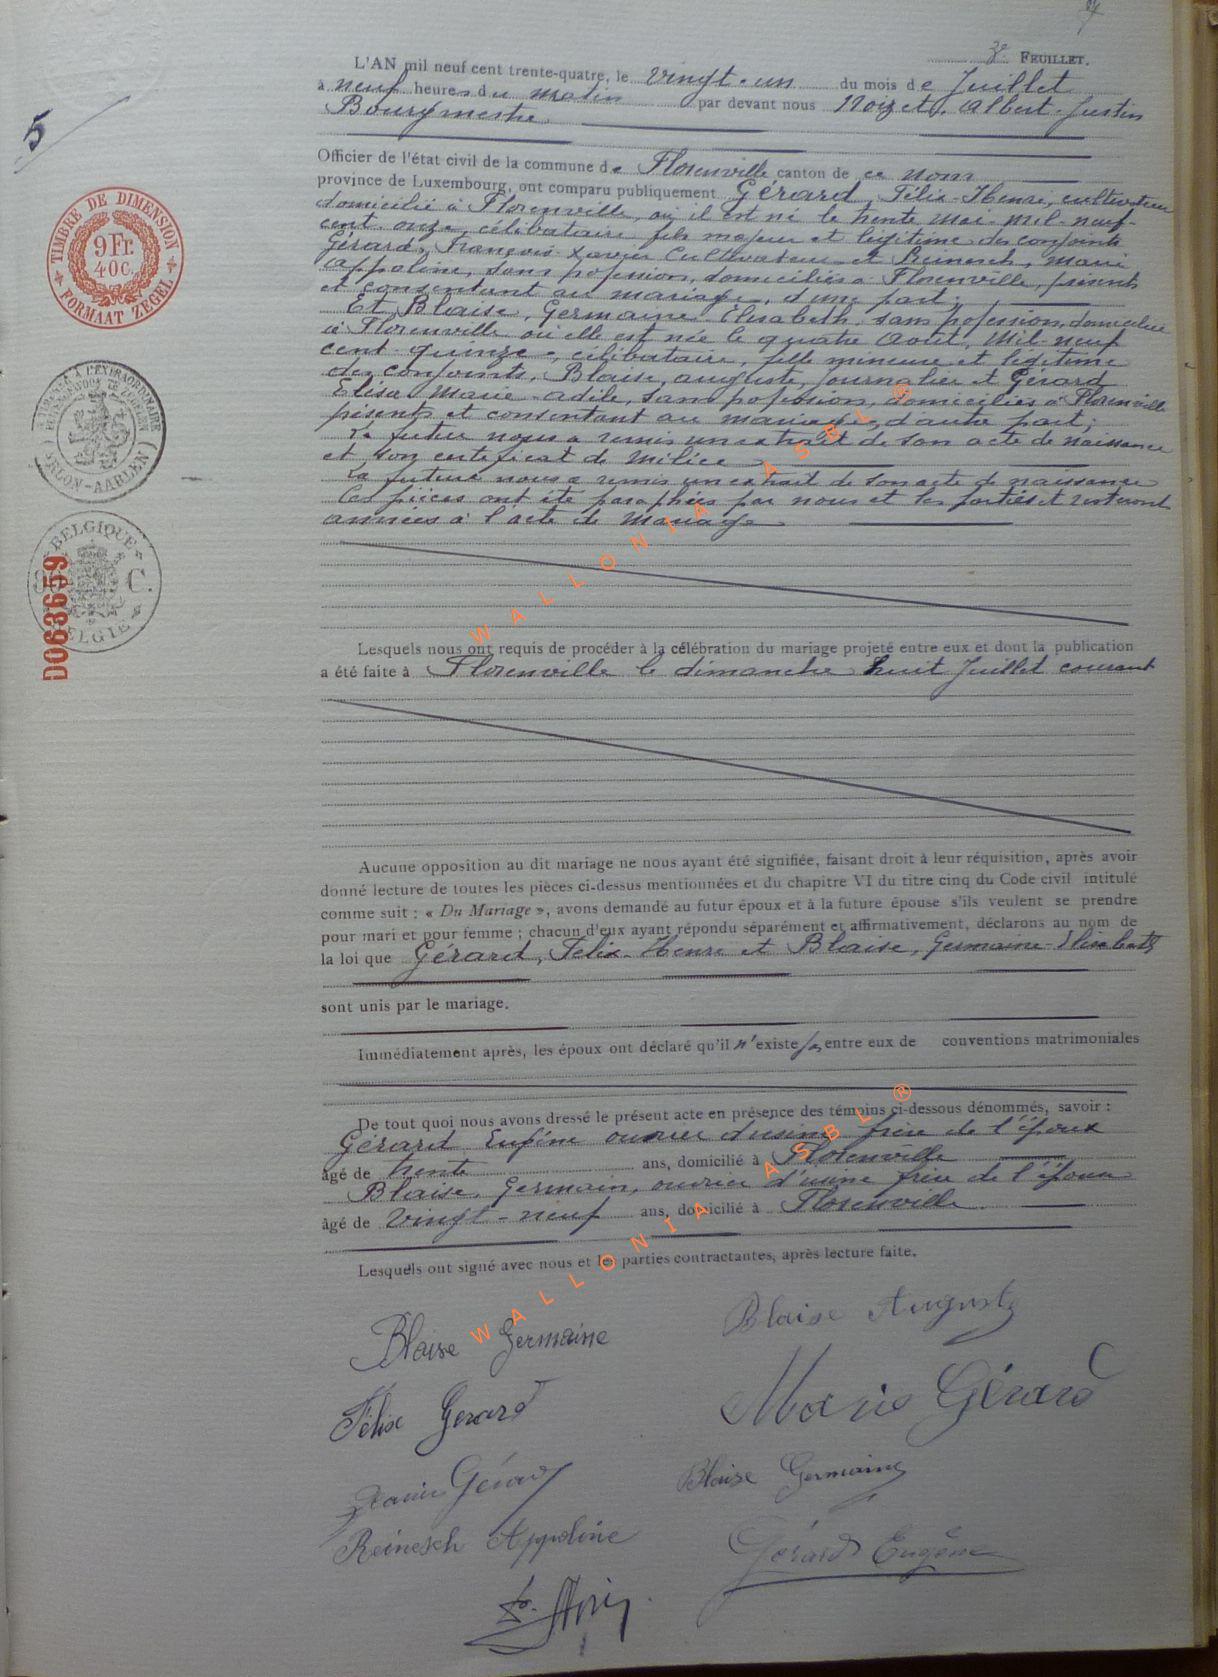 3e FEUILLET.
5
L'AN mil neuf cent trente-quatre, le vingt-un du mois de Juillet
à neuf heures du matin par devant nous Noizet, Albert-Justin
Bourgmestre
Officier de l'état civil de la commune de Florenville canton de ce nom
province de Luxembourg, ont comparu publiquement Gérard, Félix-Henri, cultivateur
domicilié à Florenville, où il est né le trente Mai mil-neuf-
cent onze, célibataire fils majeur et légitime des conjoints
Gérard, François-Xavier Cultivateur et Reinesch, Marie
Appoline, sans profession, domiciliés à Florenville, présents
et consentant au mariage, d'une part;
Et Blaise, Germaine Elisabeth, sans profession, domiciliée
à Florenville où elle est née le quatre Août, Mil-neuf
cent-quinze, célibataire, fille mineure et légitime
des conjoints, Blaise, auguste, journalier et Gérard
Elisa Marie-adèle, sans profession, domiciliés à Florenville
présents et consentant au mariage, d'autre part;
Le futur nous a remis un extrait de son acte de naissance
et son certificat de Milice
La future nous a remis un extrait de son acte de naissance
Ces pièces ont été paraphées par nous et les parties et resteront
annexées à l'acte de mariage
TIMBRE DE DIMENSION
9 Fr.
40 c.
FORMAAT ZEGEL
ARLON-AARLEN
BELGIQUE
C.
BELGIE
D063659
Lesquels nous ont requis de procéder à la célébration du mariage projeté entre eux et dont la publication
a été faite à Florenville le dimanche huit Juillet courant
Aucune opposition au dit mariage ne nous ayant été signifiée, faisant droit à leur réquisition, après avoir
donné lecture de toutes les pièces ci-dessus mentionnées et du chapitre VI du titre cinq du Code civil intitulé
comme suit : « Du Mariage », avons demandé au futur époux et à la future épouse s'ils veulent se prendre
pour mari et pour femme ; chacun d'eux ayant répondu séparément et affirmativement, déclarons au nom de
la loi que Gérard, Félix-Henri et Blaise, Germaine-Elisabeth
sont unis par le mariage.
Immédiatement après, les époux ont déclaré qu'il n'existe pas entre eux de conventions matrimoniales
De tout quoi nous avons dressé le présent acte en présence des témoins ci-dessous dénommés, savoir :
Gérard Eugène ouvrier d'usine frère de l'époux
âgé de trente ans, domicilié à Florenville
Blaise, Germain, ouvrier d'usine frère de l'épouse
âgé de vingt-neuf ans, domicilié à Florenville
Lesquels ont signé avec nous et les parties contractantes, après lecture faite.
Blaise Germaine
Blaise Auguste
Félix Gerard
Marie Gérard
Xavier Gérard
Blaise Germain
Reinesch Appoline
Gérard Eugène
WALLONIA ASBL ®
WALLONIA ASBL ®